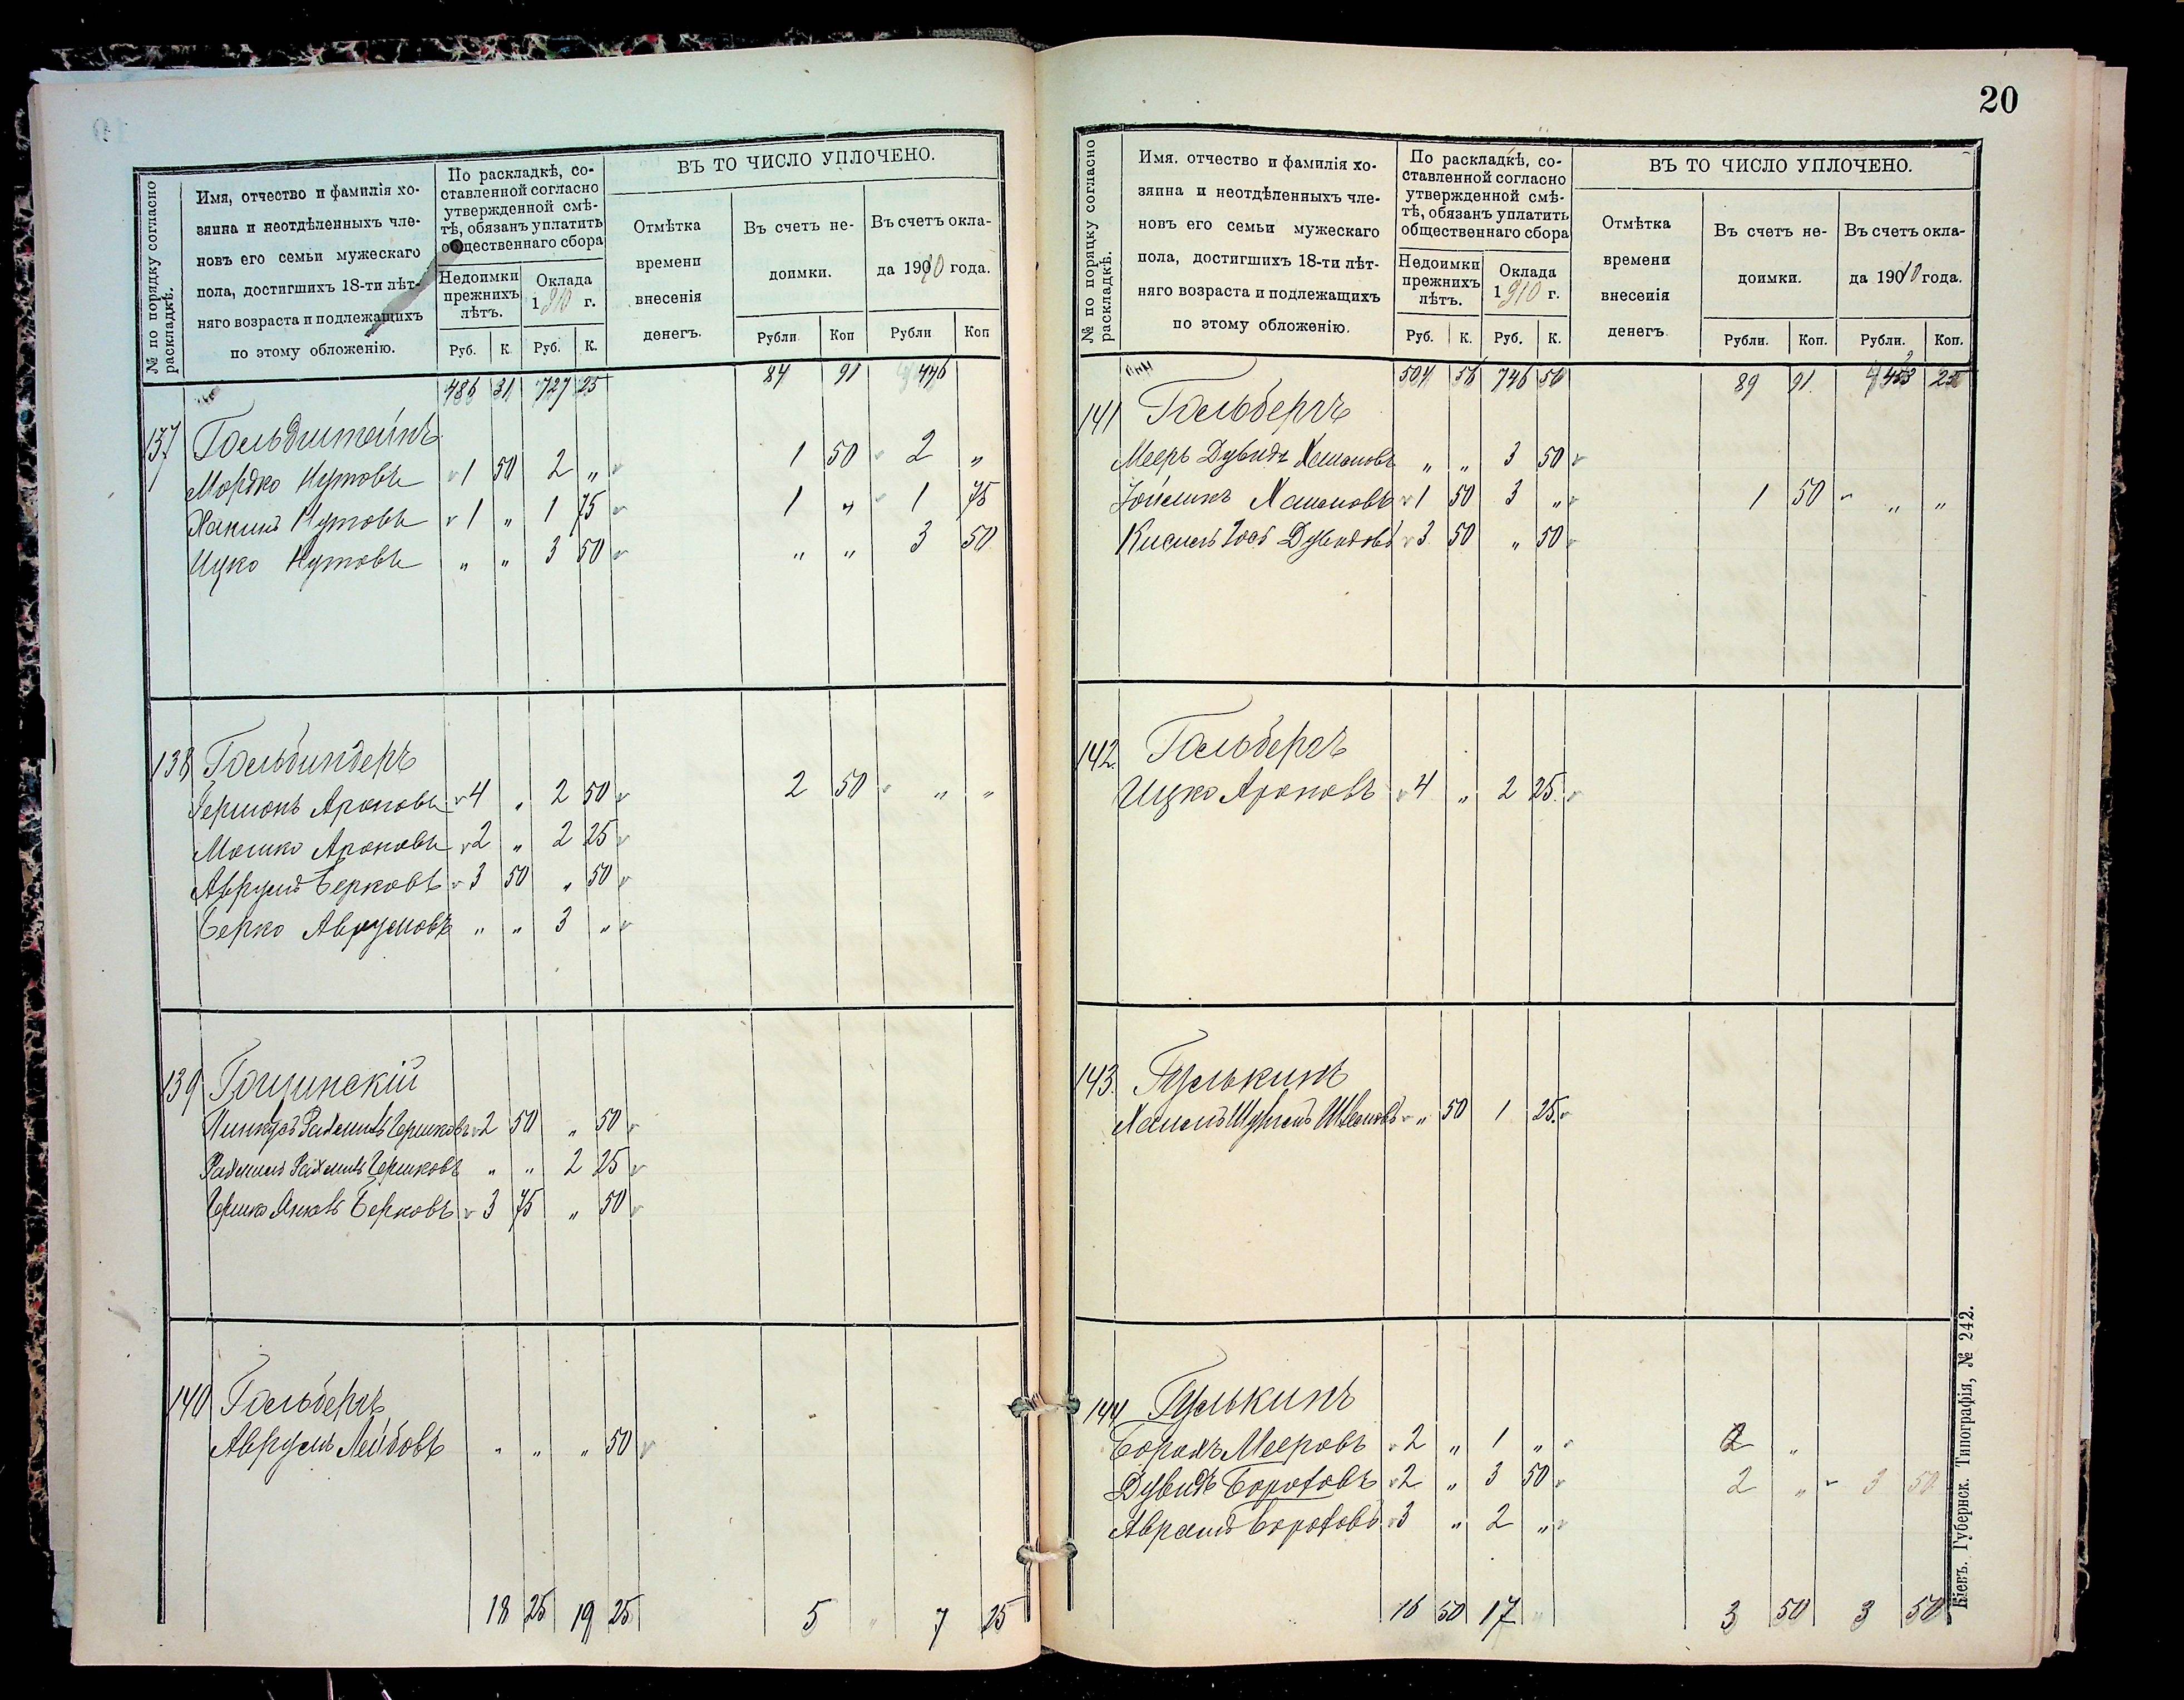 20
№ по порядку согласно раскладкѣ.
Имя, отчество и фамилія хо-
зяина и неотдѣленныхъ чле-
новъ его семьи мужескаго
пола, достигшихъ 18-ти лѣт-
няго возраста и подлежащихъ
по этому обложенію.
По раскладкѣ, со-
ставленной согласно
утвержденной смѣ-
тѣ, обязанъ уплатить
общественнаго сбора
Недоимки прежнихъ лѣтъ.
Оклада 1910 г.
Руб. К. Руб. К.
ВЪ ТО ЧИСЛО УПЛОЧЕНО.
Отмѣтка времени внесенія денегъ.
Въ счетъ не-
доимки.
Въ счетъ окла-
да 1910 года.
Рубли. Коп Рубли Коп
486 31 727 25 84 91 446
137 Гольдштейнъ
Мордко Нутовъ 1 50 2 „ 1 50 2 „
Хакинъ Нутовъ 1 „ 1 75 1 „ 1 75
Ицко Нутовъ „ „ 3 50 „ „ 3 50
138 Гольбиндеръ
Гершонъ Ароновъ 4 „ 2 50 2 50 „ „
Мошко Ароновъ 2 „ 2 25
Аврумъ Берковъ 3 50 „ 50
Берко Аврумовъ „ „ 3 „
139 Гощинскій
Пинкусъ Рахмилъ Гершковъ 2 50 „ 50
Рахмилъ Гершковъ „ „ 2 25
Гершко Янкель Берковъ 3 75 „ 50
140 Гольбергъ
Аврумъ Лейбовъ „ „ „ 50
18 25 19 25 5 „ 7 25
№ по порядку согласно раскладкѣ.
Имя, отчество и фамилія хо-
зяина и неотдѣленныхъ чле-
новъ его семьи мужескаго
пола, достигшихъ 18-ти лѣт-
няго возраста и подлежащихъ
по этому обложенію.
По раскладкѣ, со-
ставленной согласно
утвержденной смѣ-
тѣ, обязанъ уплатить
общественнаго сбора
Недоимки прежнихъ лѣтъ.
Оклада 1910 г.
Руб. К. Руб. К.
ВЪ ТО ЧИСЛО УПЛОЧЕНО.
Отмѣтка времени внесенія денегъ.
Въ счетъ не-
доимки.
Въ счетъ окла-
да 1910 года.
Рубли. Коп. Рубли. Коп.
504 56 746 50 89 91 453 25
141 Гольбергъ
Мееръ Дувидъ „ „ 3 50
1 50 3 „ 1 50 „ „
Дувидовъ 3 50 „ 50
142. Гольбергъ
Ицко Ароновъ 4 „ 2 25
143. Гулькинъ
„ 50 1 25
144 Гулькинъ
Борохъ Мееровъ 2 „ 1 „ 2 „
Дувидъ Бороховъ 2 „ 3 50 2 „ 3 50
Аврамъ Бороховъ 3 „ 2 „
16 50 17 „ 3 50 3 50
Кіевъ. Губернск. Типографія, № 242.